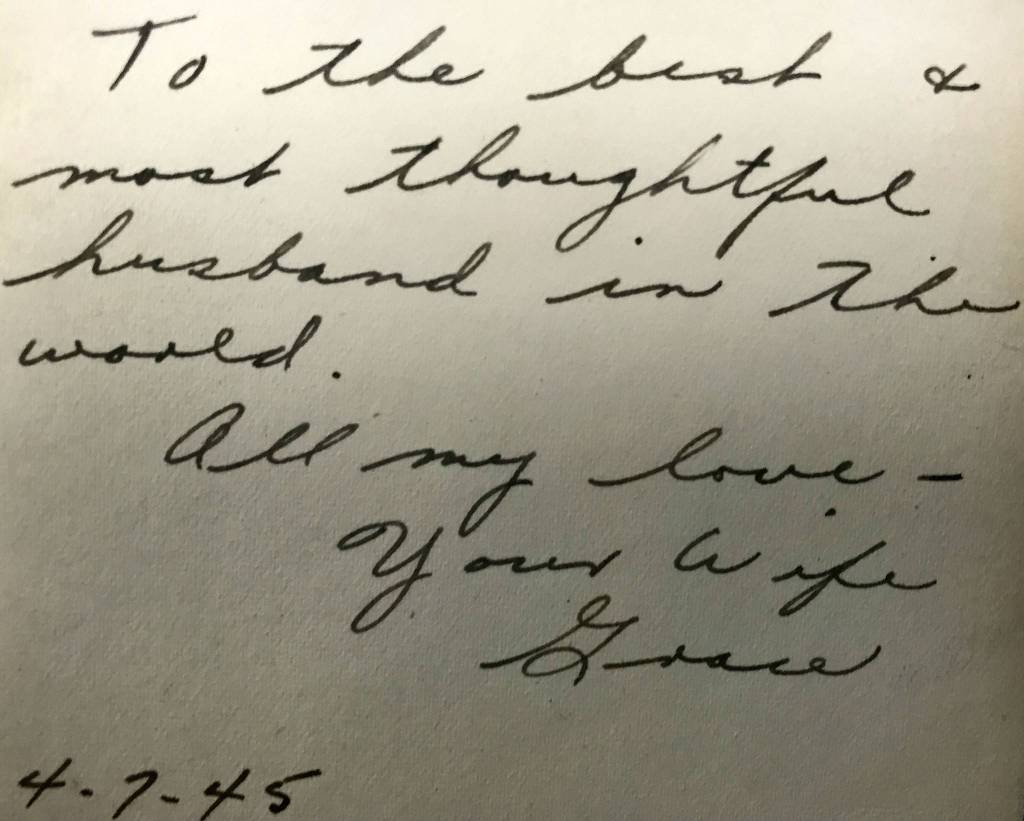 To the best &
most thoughtful
husband in the
world.
All my love -
Your Wife
Grace
4-7-45